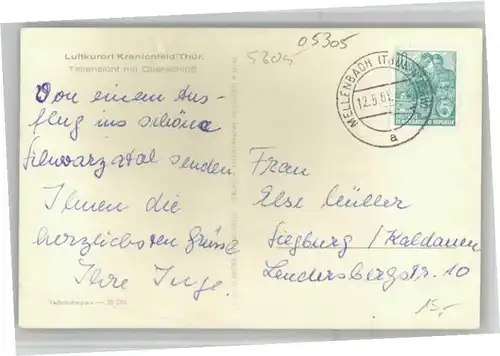 Luftkurort Kranichfeld Thür.
Teilansicht mit Oberschloß
5305
05305
MELLENBACH (THÜR
12.5.61
a
DEUTSCHE DEMOKRATISCHE REPUBLIK
5
Von einem Aus-
flug ins schöne
Schwarzatal senden
Ihnen die
herzlichsten Grüsse
Ihre Inge.
Frau
Else Müller
Siegburg / Kaldauen
Lendersbergstr. 10
15,-